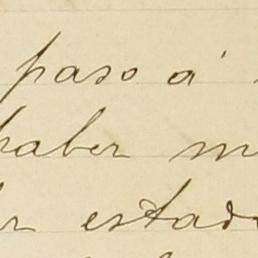 paso á
haber m
r estado